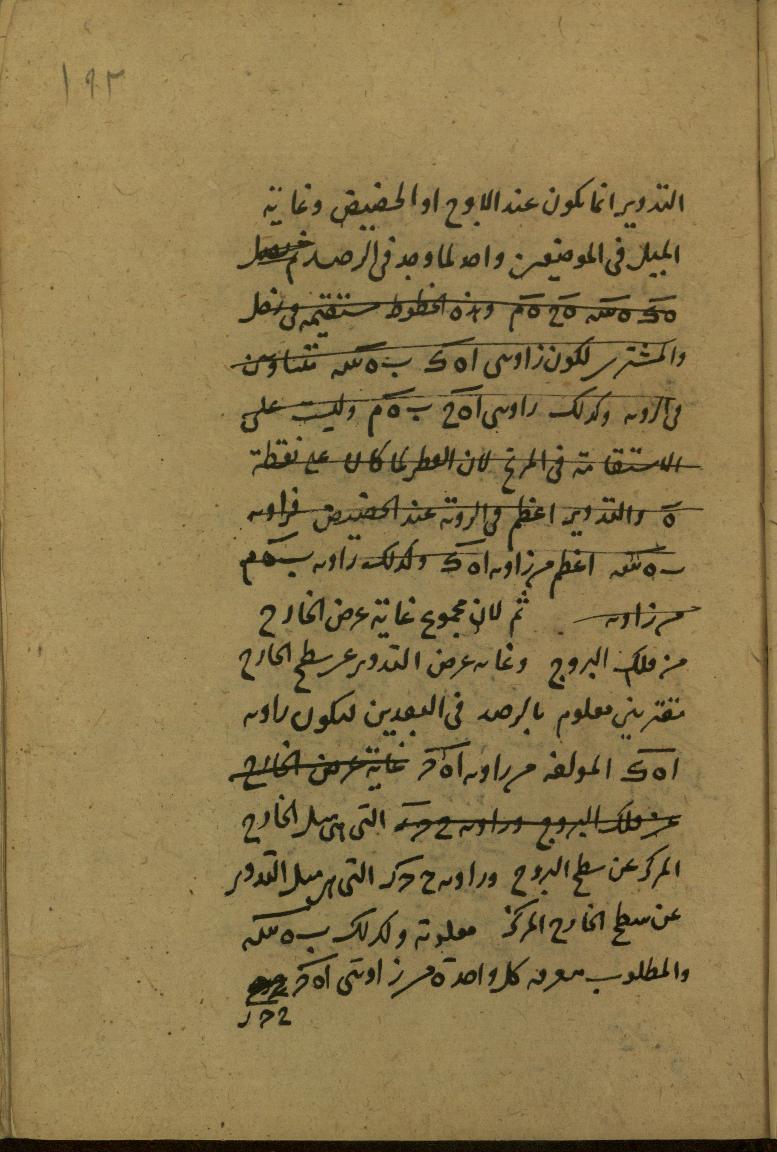 ١٩٣
التدوير انما يكون عند الاوج او الحضيض وغاية
الميل فى الموضعين واحد لما وجد فى الرصد ثم
وهذه الخطوط مستقيمة فى زحل
والمشترى لكون زاويتى ا ه ك ب ه س متساويتين
فى الروية وكذلك زاويتى ا ه ح ب ه م وليست على
الاستقامة فى المريخ لان القطر لما كان على نقطة
ه والتدوير اعظم فى الروية عند الحضيض فزاوية
ب ه س اعظم من زاوية ا ه ك وكذلك زاوية ب ه م
من زاوية ثم لان مجموع غاية عرض الخارج
من فلك البروج وغاية عرض التدوير عن سطح الخارج
معلوم بالرصد فى البعدين فيكون زاوية
ا ه ك المولفة من زاوية غاية عرض الخارج
عن فلك البروج وزاوية التى هى ميل الخارج
المركز عن سطح البروج وزاوية التى هى ميل التدوير
عن سطح الخارج المركز معلومة وكذلك ب ه س
والمطلوب معرفة كل واحدة من زاويتى